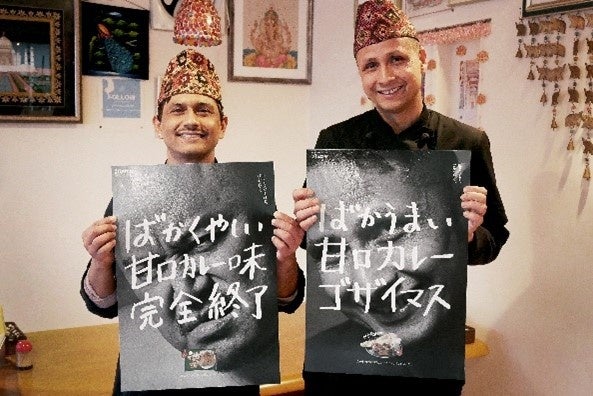 ばかくやしい
甘口カレー味
完全終了
ばかうまい
甘口カレー
ゴザイマス